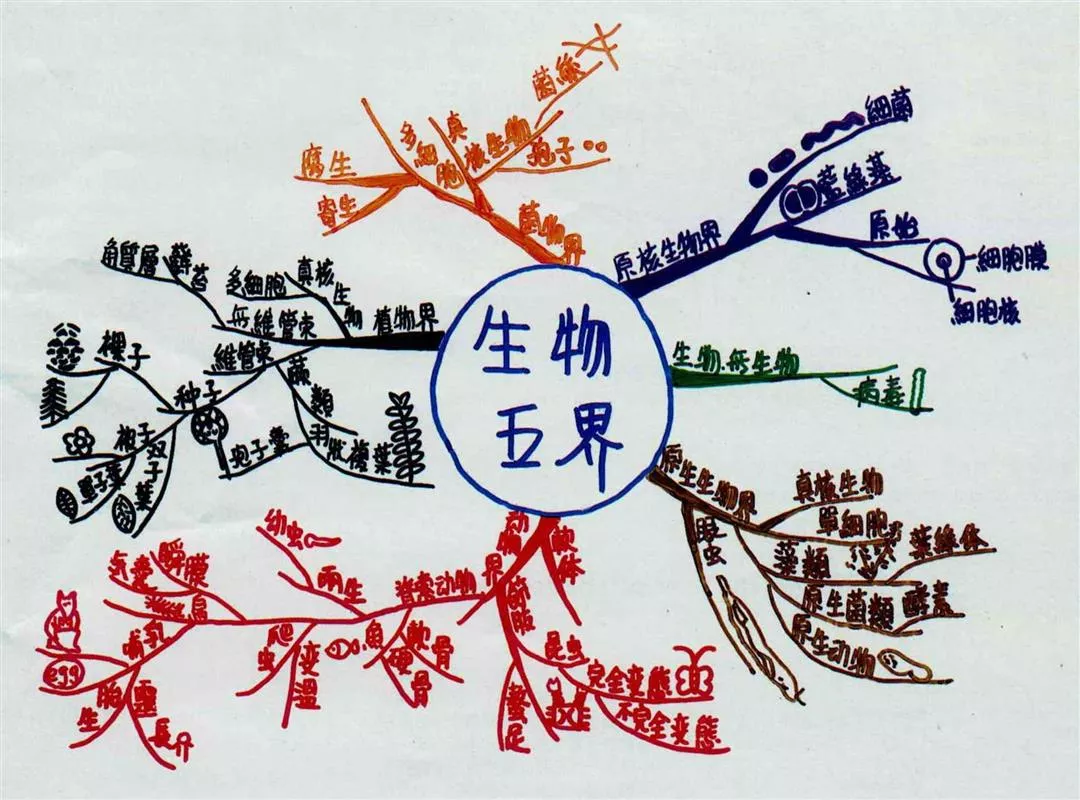 生物
五界
原核生物界
細菌
藍綠藻
原始
細胞膜
細胞核
生物.無生物
病毒
原生生物界
真核生物
單細胞
藻類
葉綠体
原生菌類
酵素
原生动物
眼虫
动物界
軟体
節肢
昆虫
完全变態
不完全变態
螯足
脊索动物
魚
軟骨
硬骨
兩生
幼虫
爬虫
变溫
鳥
瞬膜
气囊
哺乳
egg
胎生
靈長
植物界
真核生物
多細胞
無維管束
蘚苔
角質層
維管束
蕨類
羽狀複葉
孢子囊
种子
裸子
被子
單子葉
双子葉
菌物界
真核生物
多細胞
菌絲
孢子
腐生
寄生